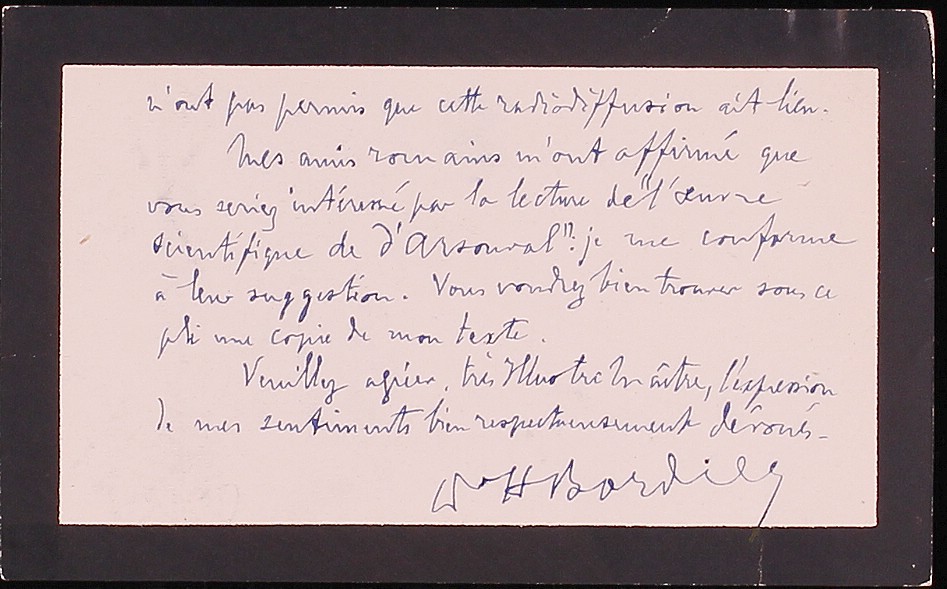 n'ont pas permis que cette radiodiffusion ait lieu.
Mes amis romains m'ont affirmé que
vous seriez intéressé par la lecture de "l'œuvre
scientifique de d'Arsonval": je me conforme
à leur suggestion. Vous voudrez bien trouver sous ce
pli une copie de mon texte.
Veuillez agréer, très Illustre Maître, l'expression
de mes sentiments bien respectueusement dévoués.
Dr H Bordier